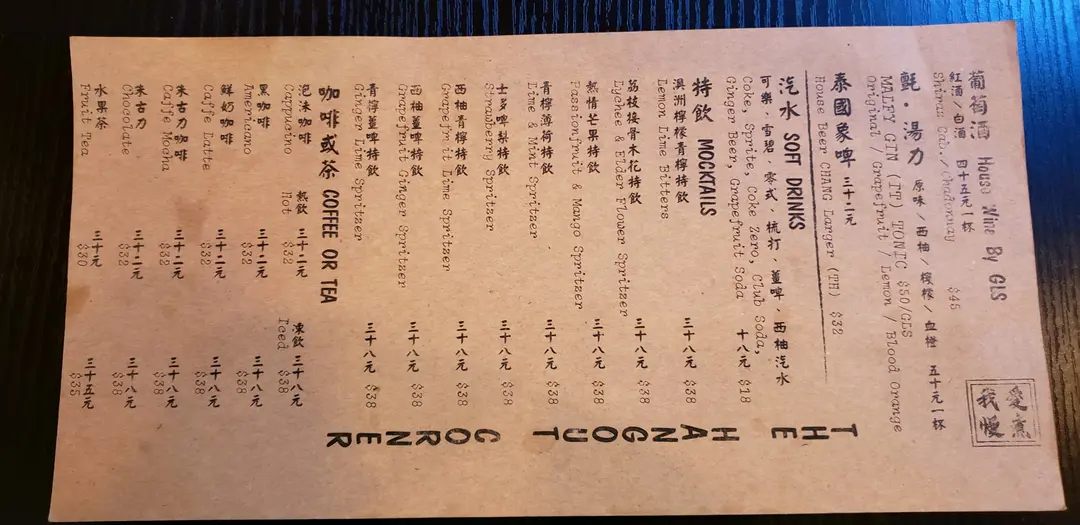 葡萄酒 House Wine By GLS
紅酒／白酒 四十五元一杯
Shiraz Cab./Chadonnay $45
氈・湯力 原味／西柚／檸檬／血橙 五十元一杯
MALFY GIN (IT) TONIC $50/GLS
Original / Grapefruit / Lemon / Blood Orange
泰國象啤 三十二元
House Beer CHANG Larger (TH) $32
汽水 SOFT DRINKS
可樂、雪碧、零式、梳打、薑啤、西柚汽水
Coke, Sprite, Coke Zero, Club Soda,
Ginger Beer, Grapefruit Soda 十八元 $18
特飲 MOCKTAILS
澳洲檸檬青檸特飲 三十八元 $38
Lemon Lime Bitters
荔枝接骨木花特飲 三十八元 $38
Lychee & Elder Flower Spritzer
熱情芒果特飲 三十八元 $38
Passionfruit & Mango Spritzer
青檸薄荷特飲 三十八元 $38
Lime & Mint Spritzer
士多啤梨特飲 三十八元 $38
Strawberry Spritzer
西柚青檸特飲 三十八元 $38
Grapefruit Lime Spritzer
西柚薑啤特飲 三十八元 $38
Grapefruit Ginger Spritzer
青檸薑啤特飲 三十八元 $38
Ginger Lime Spritzer
咖啡或茶 COFFEE OR TEA
熱飲 凍飲
Hot Iced
泡沫咖啡 三十二元 三十八元
Cappucino $32 $38
黑咖啡 三十二元 三十八元
Americano $32 $38
鮮奶咖啡 三十二元 三十八元
Caffe Latte $32 $38
朱古力咖啡 三十二元 三十八元
Caffe Mocha $32 $38
朱古力 三十二元 三十八元
Chocolate $32 $38
水果茶 三十元 三十五元
Fruit Tea $30 $35
THE HANGOUT CORNER
愛煮
我慢